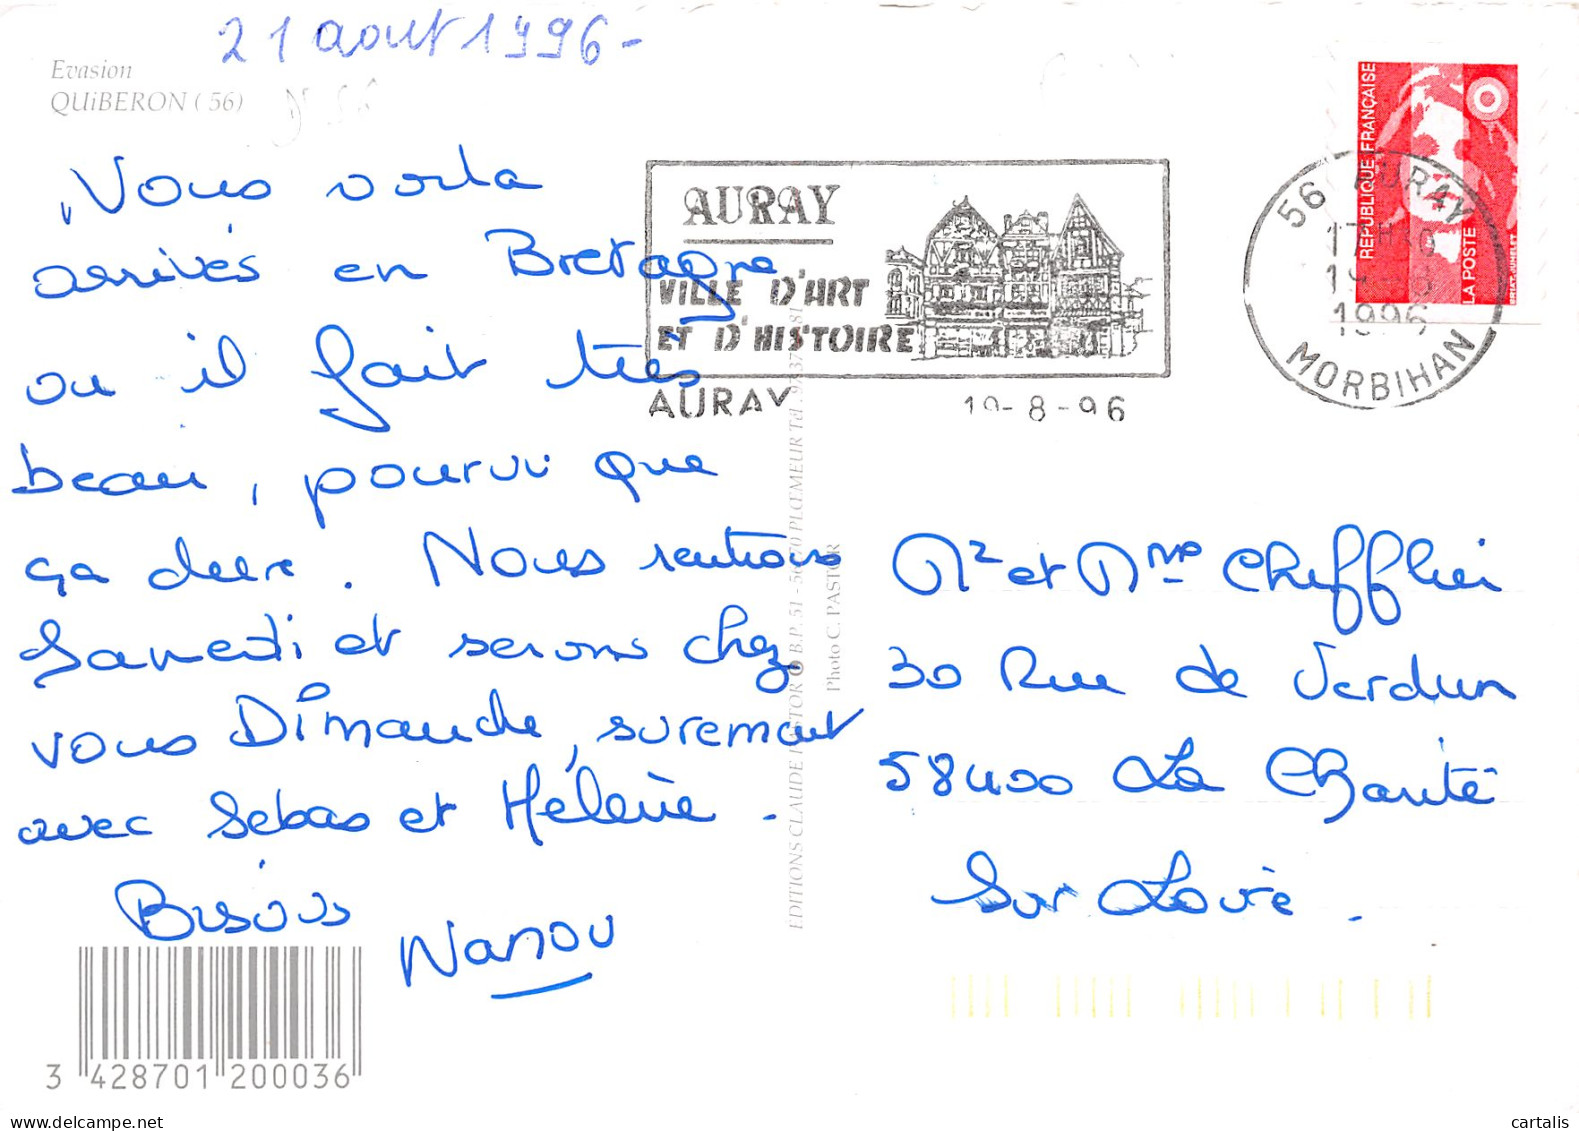 21 aout 1996-
Evasion
QUiBERON (56)
Vous voila
arrivés en Bretagne
ou il fait très
beau, pourvu que
ça dure. Nous rentrons
Samedi et serons chez
vous Dimanche, surement
avec Sebas et Hélène.
Bisous
Nanou
3 428701 200036
EDITIONS CLAUDE PASTOR B.P. 51 - 56270 PLŒMEUR Tél.
Photo C. PASTOR
AURAY
VILLE D'ART
ET D'HISTOIRE
AURAY 19-8-96
REPUBLIQUE FRANÇAISE
LA POSTE
56 AURAY
1996
MORBIHAN
Mr et Mme Chefflier
30 Rue de Verdun
58400 La Charité
Sur Loire.
cartalis